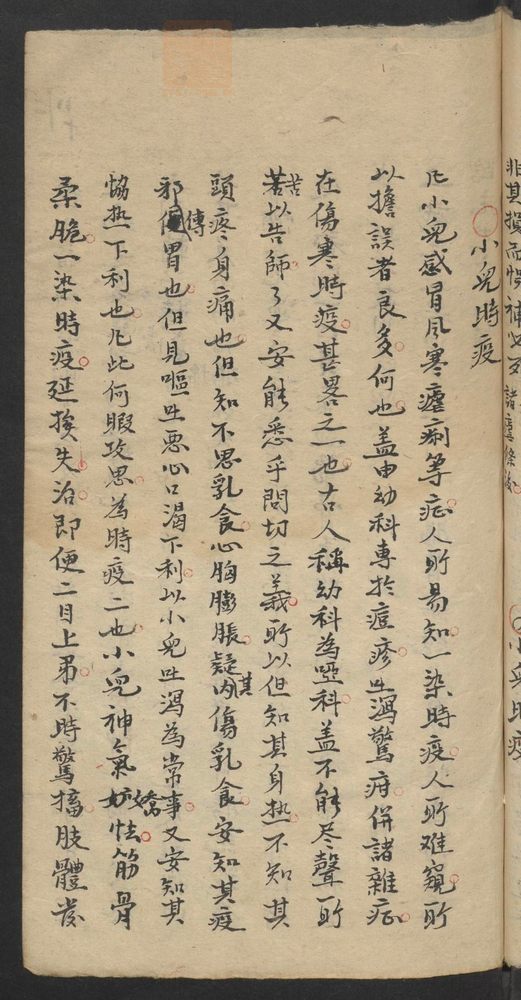 小兒時疫
凡小兒感冒风寒瘧痢等症人所易知一染時疫人所难窺所
以擔誤者良多何也盖由幼科專於痘疹吐瀉驚疳併諸雜症
在傷寒時疫甚畧之一也古人稱幼科為啞科盖不能尽聲所
苦以告師了又安能悉乎問切之義所以但知其身热不知其
頭疼身痛也但知不思乳食心胸膨脹疑其內傷乳食安知其疫
邪傳胃也但見嘔吐恶心口渴下利以小兒吐瀉為常事又安知其
協热下利也凡此何暇攻思為時疫二也小兒神氣嬌怯筋骨
柔脆一染時疫延挨失治即便二目上吊不時驚搐肢體发